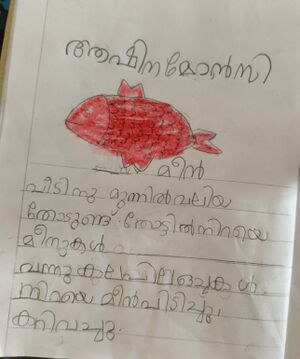 ആഷിന മോൻസി
മീൻ
വീടിനു മുന്നിൽ വലിയ
തോടുണ്ട്. തോട്ടിൽ നിറയെ
മീനുകൾ
വന്നു
നിറയെ മീൻ പിടിച്ചു.
കറിവച്ചു.